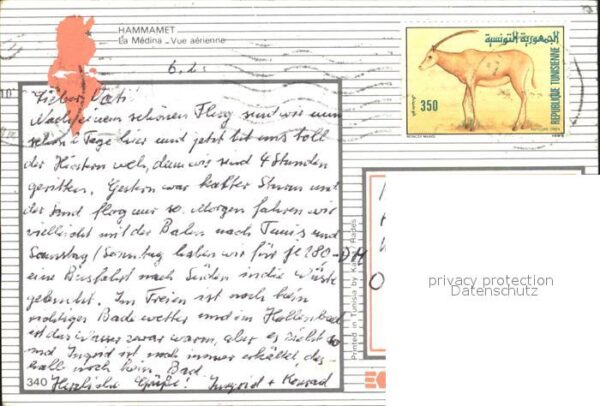 HAMMAMET
La Médina - Vue aérienne
6.2.
Lieber Vati!
Nach einem schönen Flug sind wir nun
schon 2 Tage hier und jetzt tut uns toll
der Hintern weh, denn wir sind 4 Stunden
geritten. Gestern war kalter Sturm und
der Sand flog nur so. Morgen fahren wir
vielleicht mit der Bahn nach Tunis und
Samstag/Sonntag haben wir für je 280.-DM
eine Busfahrt nach Süden in die Wüste
gebucht. Im Freien ist noch kein
richtiges Badewetter und im Hallenbad
ist das Wasser zwar warm, aber es zieht so
und Ingrid ist noch immer erkältet, des-
halb noch kein Bad.
Herzliche Grüße! Ingrid + Konrad
340
Printed in Tunisia by Kahia Rades
الجمهورية التونسية
350
REPUBLIQUE TUNISIENNE
privacy protection
Datenschutz